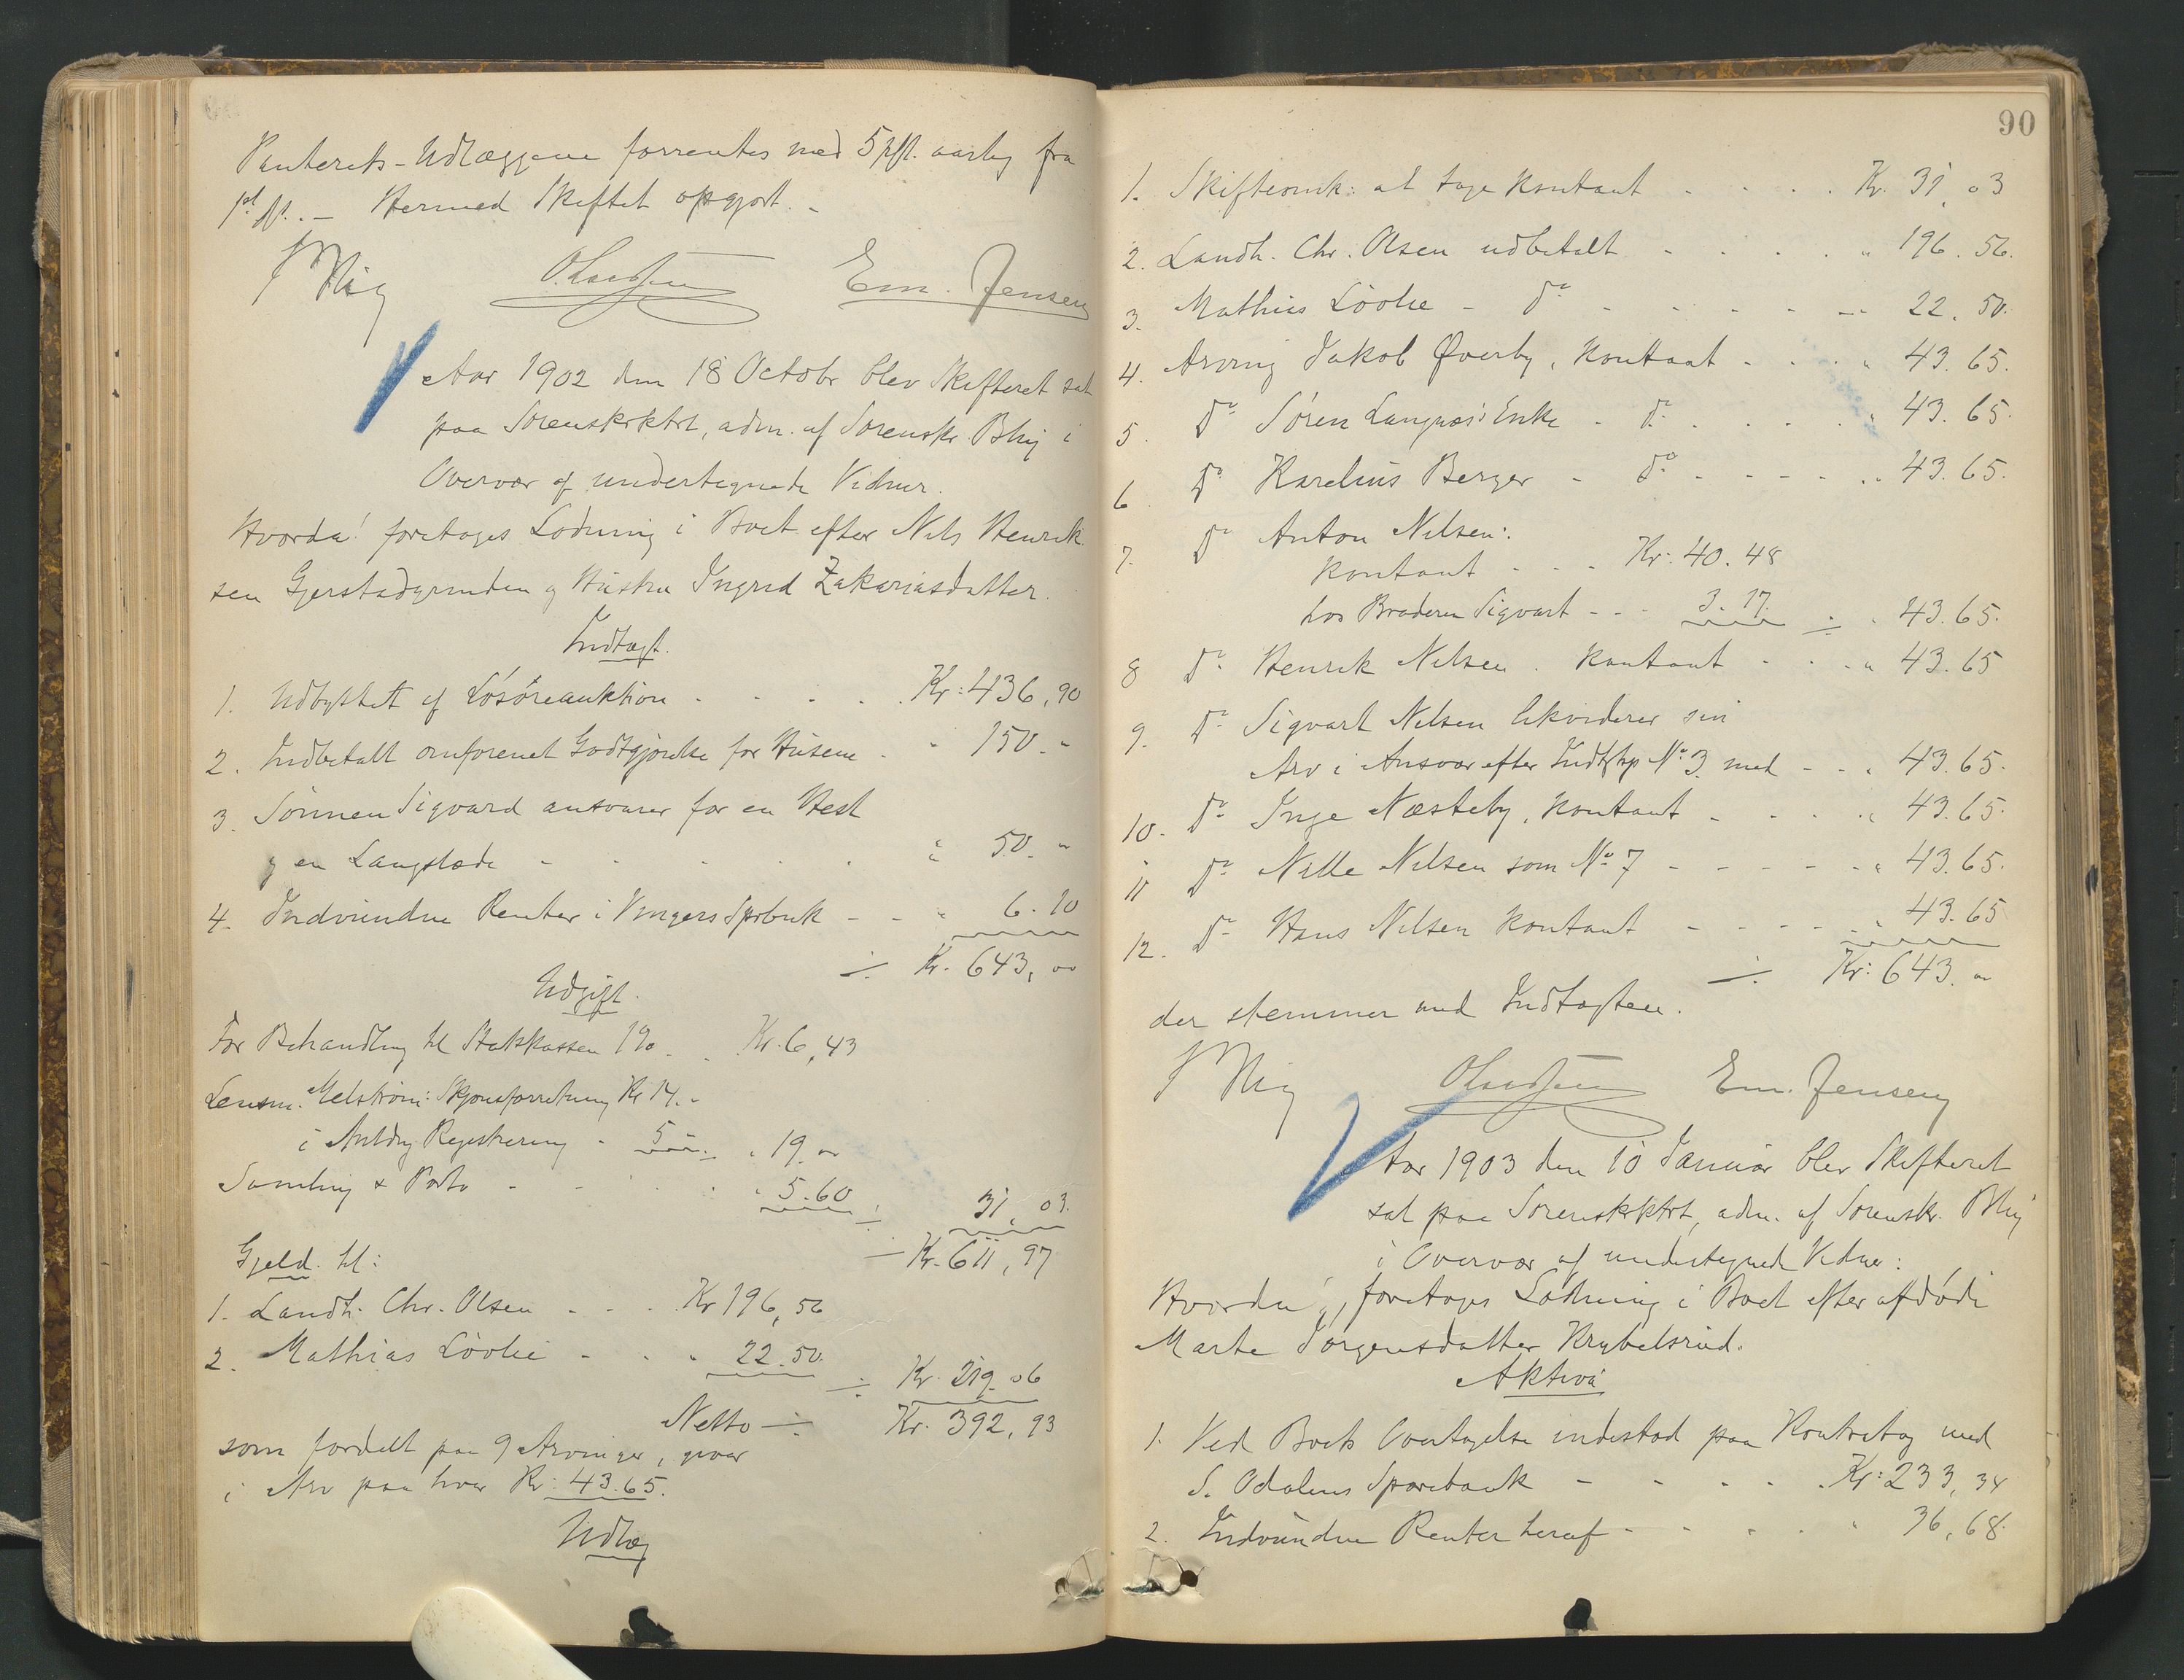 Panterets-Udlæggene forrentes med 5 pCt. aarlig fra
Hermed Skiftet opgjort. -
Em. Jensen
Aar 1902 den 18 Octobr blev Skifteret sat
paa Sorenskrktrt, adm. af Sorenskr. Blij i
Overvær af undertegnede Vidner.
Hvorda: foretoges Lodning i Boet efter Nils Henrik
sen Gjerstadgrunden og Hustru Ingrid Zakariasdatter.
Indtægt.
1. Udbyttet af Løsøreauktion - - - . Kr: 436,90
2. Indbetalt omforenet Godtgjørelse for Husene - " 150. "
3. Sønnen Sigvard ansvarer for en Hest
og en Langslæde - - - - " 50. "
4. Indvundne Renter i Vingers Sprbnk - - " 6.10
÷ Kr. 643, 00
Udgift.
For Behandling til Statskassen 1% . . Kr. 6,43
Lensm. Melstrøm: Skjønsforretning Kr 14. -
i Anldng Registrering - 5 - " 19. 00
Samling & Porto - - - " 5.60 ÷ 31, 03.
- Kr. 611, 97
Gjeld til:
1. Landh. Chr. Olsen - - - Kr 196, 56
2. Mathias Løvlie - - - 22.50.
÷ Kr. 219. 06
Netto ÷ Kr. 392, 93
som fordelt paa 9 Arvinger, giver
i Arv paa hver Kr: 43.65.
Udlæg
90
1. Skifteomk: at tage kontant - - - . Kr. 31, 03
2. Landh. Chr. Olsen udbetalt - - - - " 196. 56.
3. Mathias Løvlie - do - - - - - 22. 50.
4. Arving Jakob Øverby, kontant - - - " 43. 65.
5. Do Søren Langnæs's Enke - do. . - . . " 43. 65.
6 Do Karelius Berger - do - - - - " 43. 65.
7. Do Anton Nilsen:
kontant - - - Kr: 40. 48
hos Broderen Sigvart - - - 3. 17. ÷ " 43. 65.
8 Do Henrik Nilsen. kontant - - - " 43. 65
9. Do Sigvart Nilsen likviderer sin
Arv i Ansvar efter Indtgtsp No 3 med - - " 43. 65.
10. Do Inge Næsteby, kontant - - - " 43. 65.
11 Do Nille Nilsen som No 7 - - - - - " 43. 65.
12. Do Hans Nilsen kontant - - - - " 43. 65
÷ Kr: 643. 00
der stemmer med Indtægten.
Em. Jensen
Aar 1903 den 10 Januar blev Skifteret
sat paa Sorenskrktrt, adm. af Sorenskr. Blij
i Overvær af undertegnede Vidner:
Hvorda:, foretoges Lodning i Boet efter afdøde
Marte Jørgensdatter Krybelsrud.
Aktiva
1. Ved Boets Overtagelse indestod paa Kontrabog med
S. Odalens Sparebank - - - - . Kr: 233, 34
2. Indvundne Renter heraf - - - - " 36, 68.